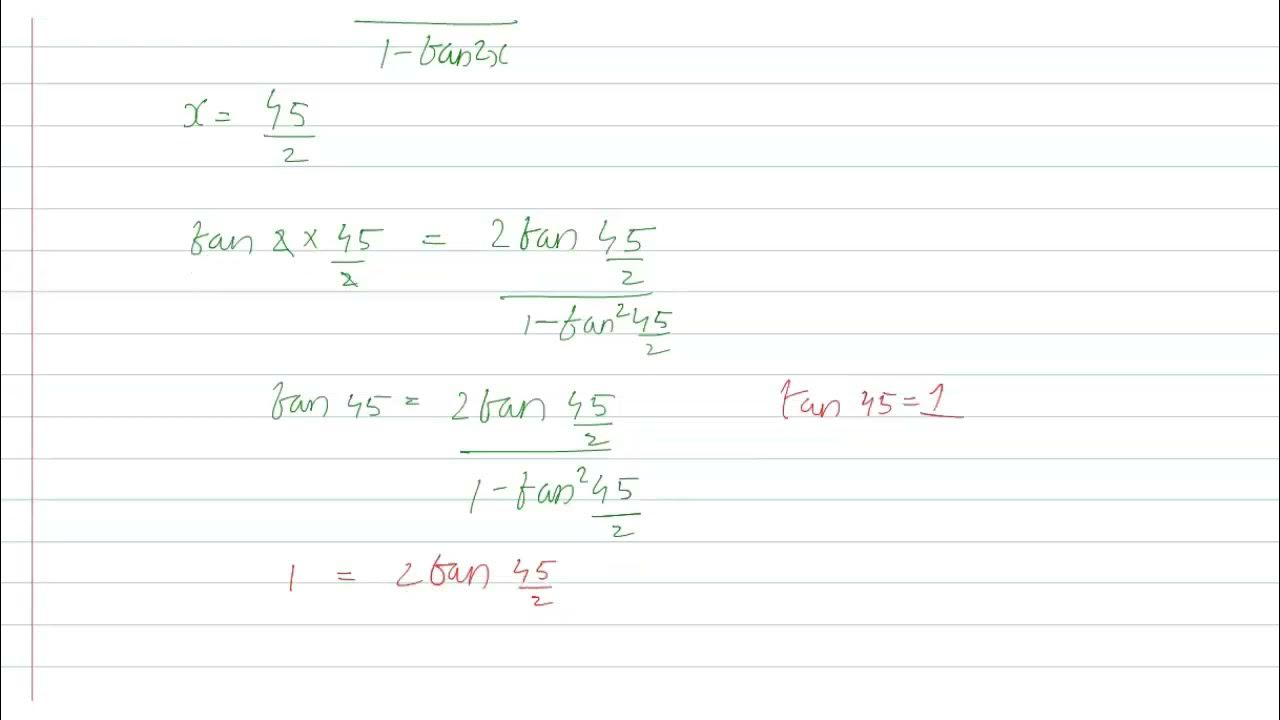 1 - tan2x
x = 45/2
tan 2 × 45/2 = 2 tan 45/2 / 1 - tan² 45/2
tan 45 = 2 tan 45/2 / 1 - tan² 45/2
tan 45 = 1
1 = 2 tan 45/2